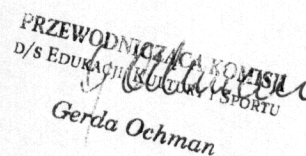 PRZEWODNICZĄCA KOMISJI
D/S EDUKACJI KULTURY I SPORTU
Gerda Ochman